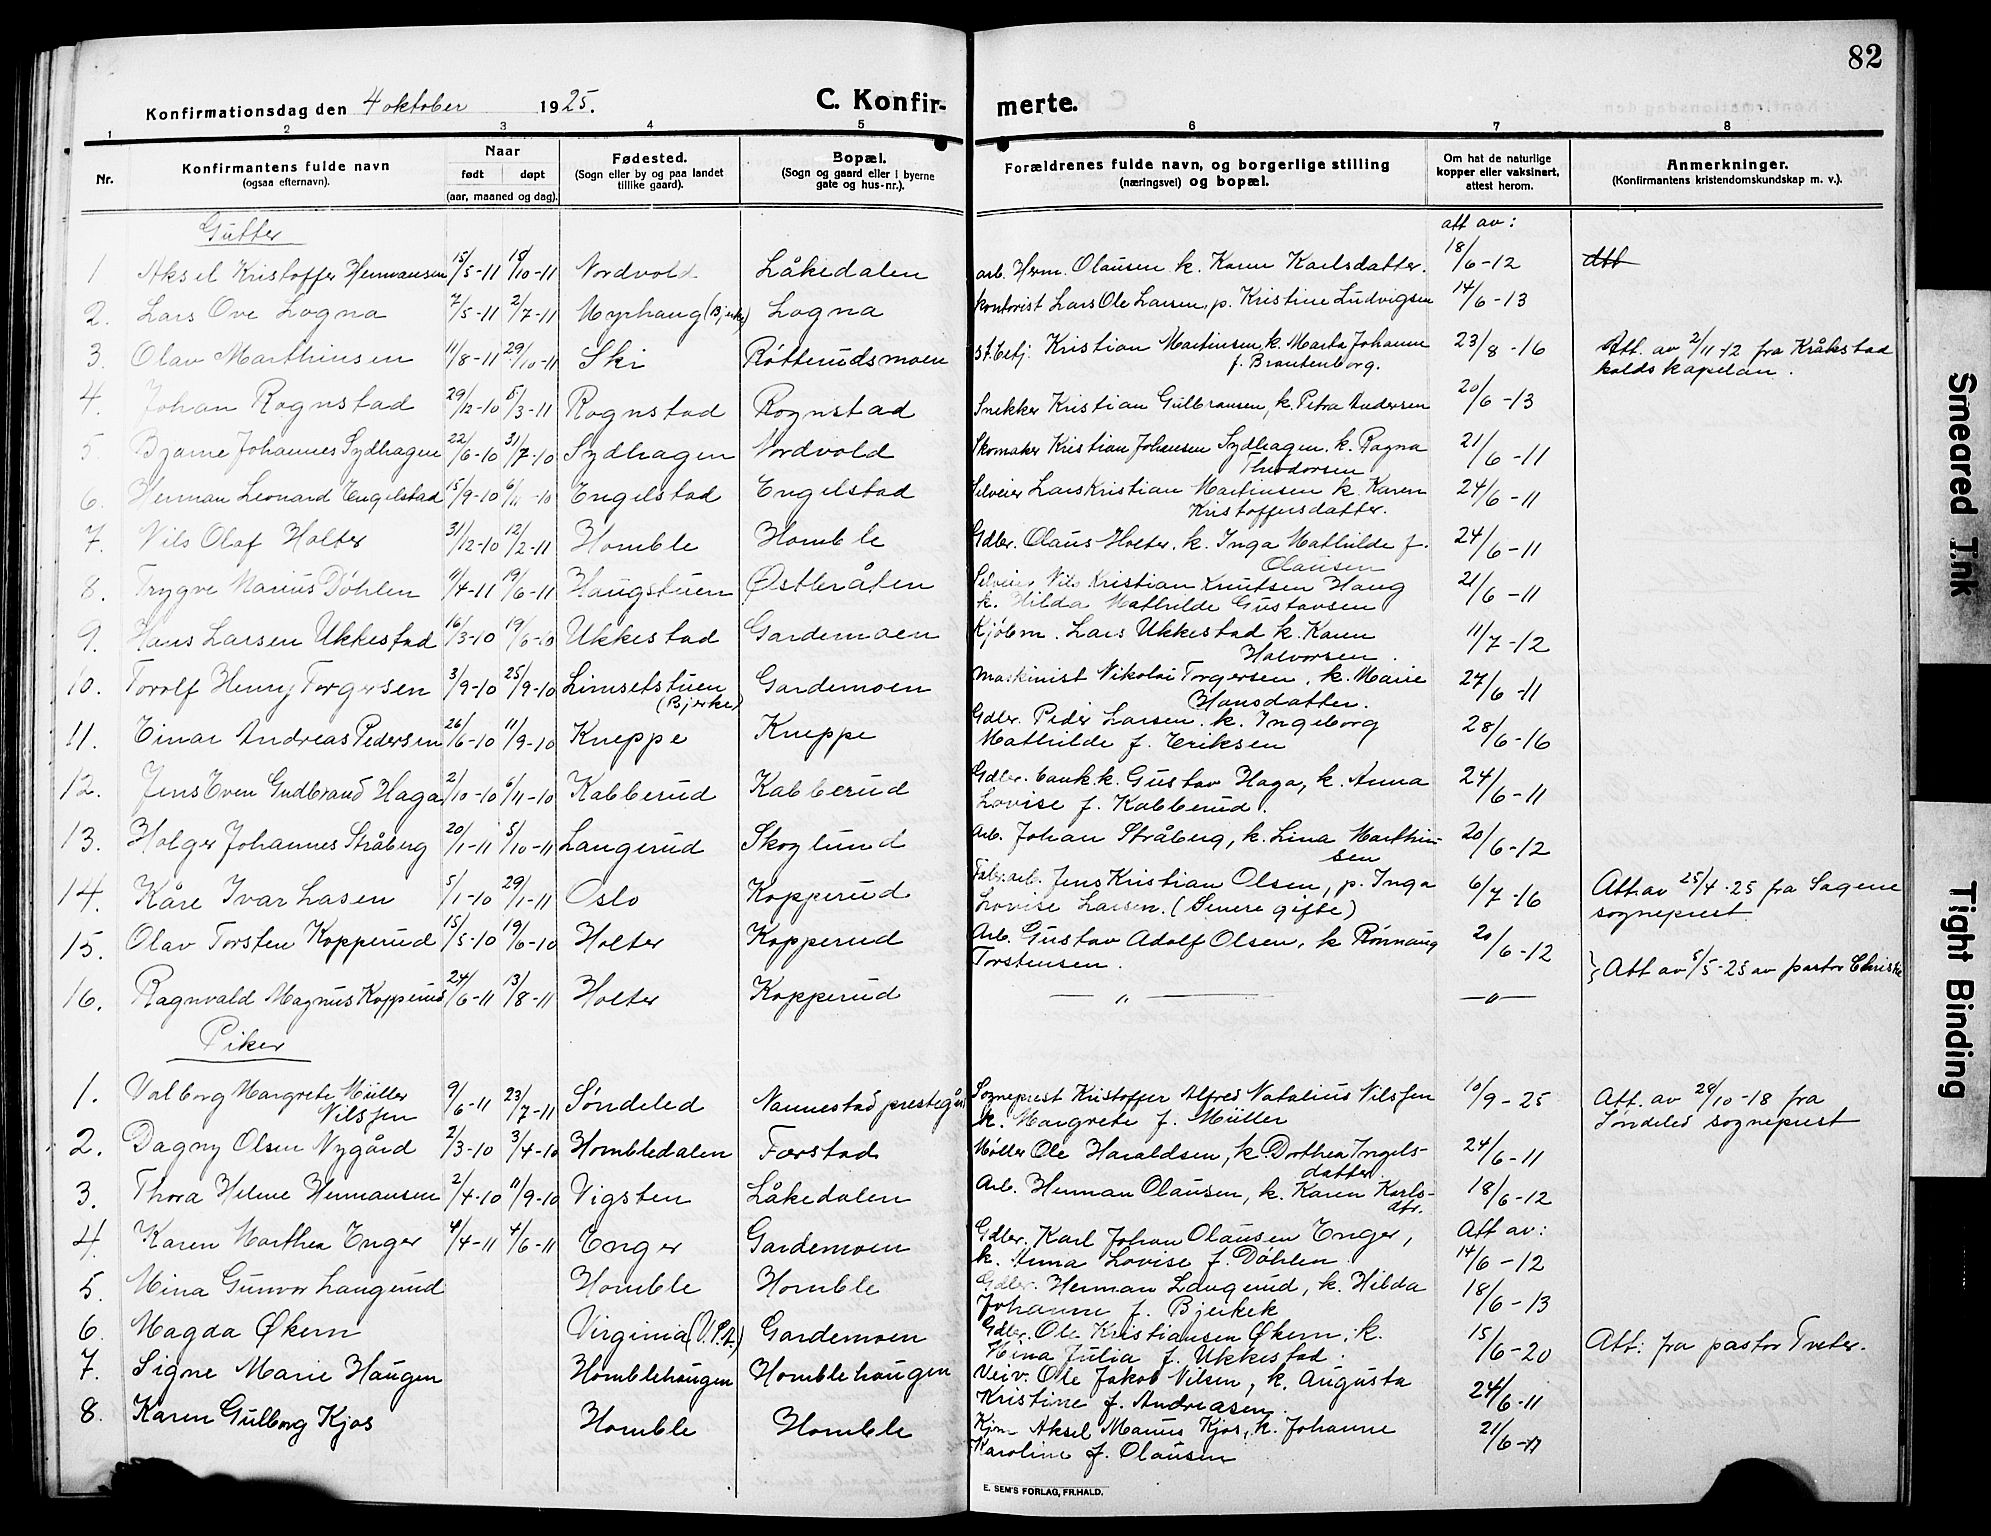 82
Konfirmationsdag den 4 oktober 1925. C. Konfirmerte.
1 2 3 4 5 6 7 8
Nr. Konfirmantens fulde navn (ogsaa efternavn). Naar født døpt (aar, maaned og dag). Fødested. (Sogn eller by og paa landet tillike gaard). Bopæl. (Sogn og gaard eller i byerne gate og hus-nr.). Forældrenes fulde navn, og borgerlige stilling (næringsvei) og bopæl. Om hat de naturlige kopper eller vaksinert, attest herom. Anmerkninger. (Konfirmantens kristendomskundskap m. v.).
Gutter att av:
1 Aksel Kristoffer Hermansen 15/5-11 15/10-11 Nordvold Låkedalen arb. Herm. Olausen k. Karen Karlsdatter. 18/6-12 Att
2. Lars Ove Logna 7/5-11 2/7-11 Myrhaug (Bjerke) Logna kontorist Lars Ole Larsen, p. Kristine Ludvigsen 14/6-13
3. Olav Marthinsen 11/8-11 29/10-11 Ski Røtterudsmoen st.betj. Kristian Martinsen, k. Marta Johanne f. Brantenborg. 23/8-16 Att. av 2/11-12 fra Kråkstad kaldskapelan.
4. Johan Rognstad 29/12-10 5/3-11 Rognstad Rognstad Snekker Kristian Gulbransen, k. Petra Andersen 20/6-13
5. Bjarne Johannes Sydhagen 22/6-10 31/7-10 Sydhagen Nordvold Skomaker Kristian Johansen Sydhagen. k. Ragna Theodorsen 21/6-11
6. Herman Leonard Engelstad 15/9-10 6/11-10 Engelstad Engelstad Selveier Lars Kristian Martinsen k. Karen Kristoffersdatter. 24/6-11
7. Nils Olaf Holter 31/12-10 12/2-11 Homble Homble Gdbr. Olaus Holter, k. Inga Mathilde f. Olausen 24/6-11
8. Trygve Marius Døhlen 11/4-11 19/6-11 Haugstuen Østbråten Selveier Nils Kristian Knutsen Haug k. Hilda Mathilde Gustavsen 21/6-11
9. Hans Larsen Ukkestad 16/3-10 19/6-10 Ukkestad Gardemoen Kjøbm. Lars Ukkestad k. Karen Halvorsen. 11/7-12
10. Torolf Henry Torgersen 3/9-10 25/9-10 Limsetstuen (Bjerke) Gardemoen Maskinist Nikolai Torgersen, k. Marie Hansdatter. 27/6-11
11. Einar Andreas Pedersen 26/6-10 11/9-10 Kneppe Kneppe Gdbr. Peder Larsen. k. Ingeborg Mathilde f. Eriksen 28/6-16
12. Jens Even Gudbrand Haga 2/10-10 6/11-10 Kabberud Kabberud Gdbr. bankk. Gustav Haga, k. Anna Lovise f. Kabberud. 24/6-11
13. Holger Johannes Stråberg 20/1-11 5/10-11 Langerud Skoglund Arb. Johan Stråberg, k. Lina Marthinsen 20/6-12
14. Kåre Ivar Lasen 5/1-10 29/1-11 Oslo Kopperud Fabr.arb. Jens Kristian Olsen, p. Inga Lovise Larsen. (Senere gifte) 6/7-16 Att. av 25/4-25 fra Sagene sogneprest
15. Olav Torsten Kopperud 15/5-10 19/6-10 Holter Kopperud Arb. Gustav Adolf Olsen, k Rønnaug Torstensen. 20/6-12
16. Ragnvald Magnus Kopperud 24/6-11 13/8-11 Holter Kopperud — " — — " — } Att av 5/5-25 av pastor Christie
Piker
1. Valborg Margrete Müller Nilssen 9/6-11 23/7-11 Søndeled Nannestad prestegård Sogneprest Kristoffer Alfred Natalius Nilssen k. Margrete f. Müller 10/9-25 Att. av 28/10-18 fra Søndeled sogneprest
2. Dagny Olsen Nygård 2/3-10 3/4-10 Hombledalen Færstad Møller Ole Haraldsen, k. Dorthea Ingelsdatter 24/6-11
3. Thora Helene Hermansen 2/4-10 11/9-10 Vigsten Låkedalen Arb. Herman Olausen, k. Karen Karlsdtr. 18/6-12
4. Karen Marthea Enger 4/4-11 4/6-11 Enger Gardemoen Gdbr. Karl Johan Olausen Enger, k. Anna Lovise f. Døhlen. Att av: 14/6-12
5. Mina Gunvor Langerud Homble Homble Gdbr. Herman Langerud, k. Hilda Johanne f. Bjerkek 18/6-13
6. Magda Økern Virginia (U.S.A.) Gardemoen Gdbr. Ole Kristiansen Økern, k. Mina Julia f. Ukkestad. 15/6-20 Att: fra pastor Tveter.
7. Signe Marie Haugen Homblehaugen Homblehaugen Veiv. Ole Jakob Nilsen, k. Augusta Kristine f. Andreasen. 24/6-11
8. Karen Gulborg Kjos Homble Homble Kjøm Aksel Marius Kjos, k. Johanne Karoline f. Olausen 21/6-11
E. SEM'S FORLAG, FR.HALD.
Smeared Ink
Tight Binding